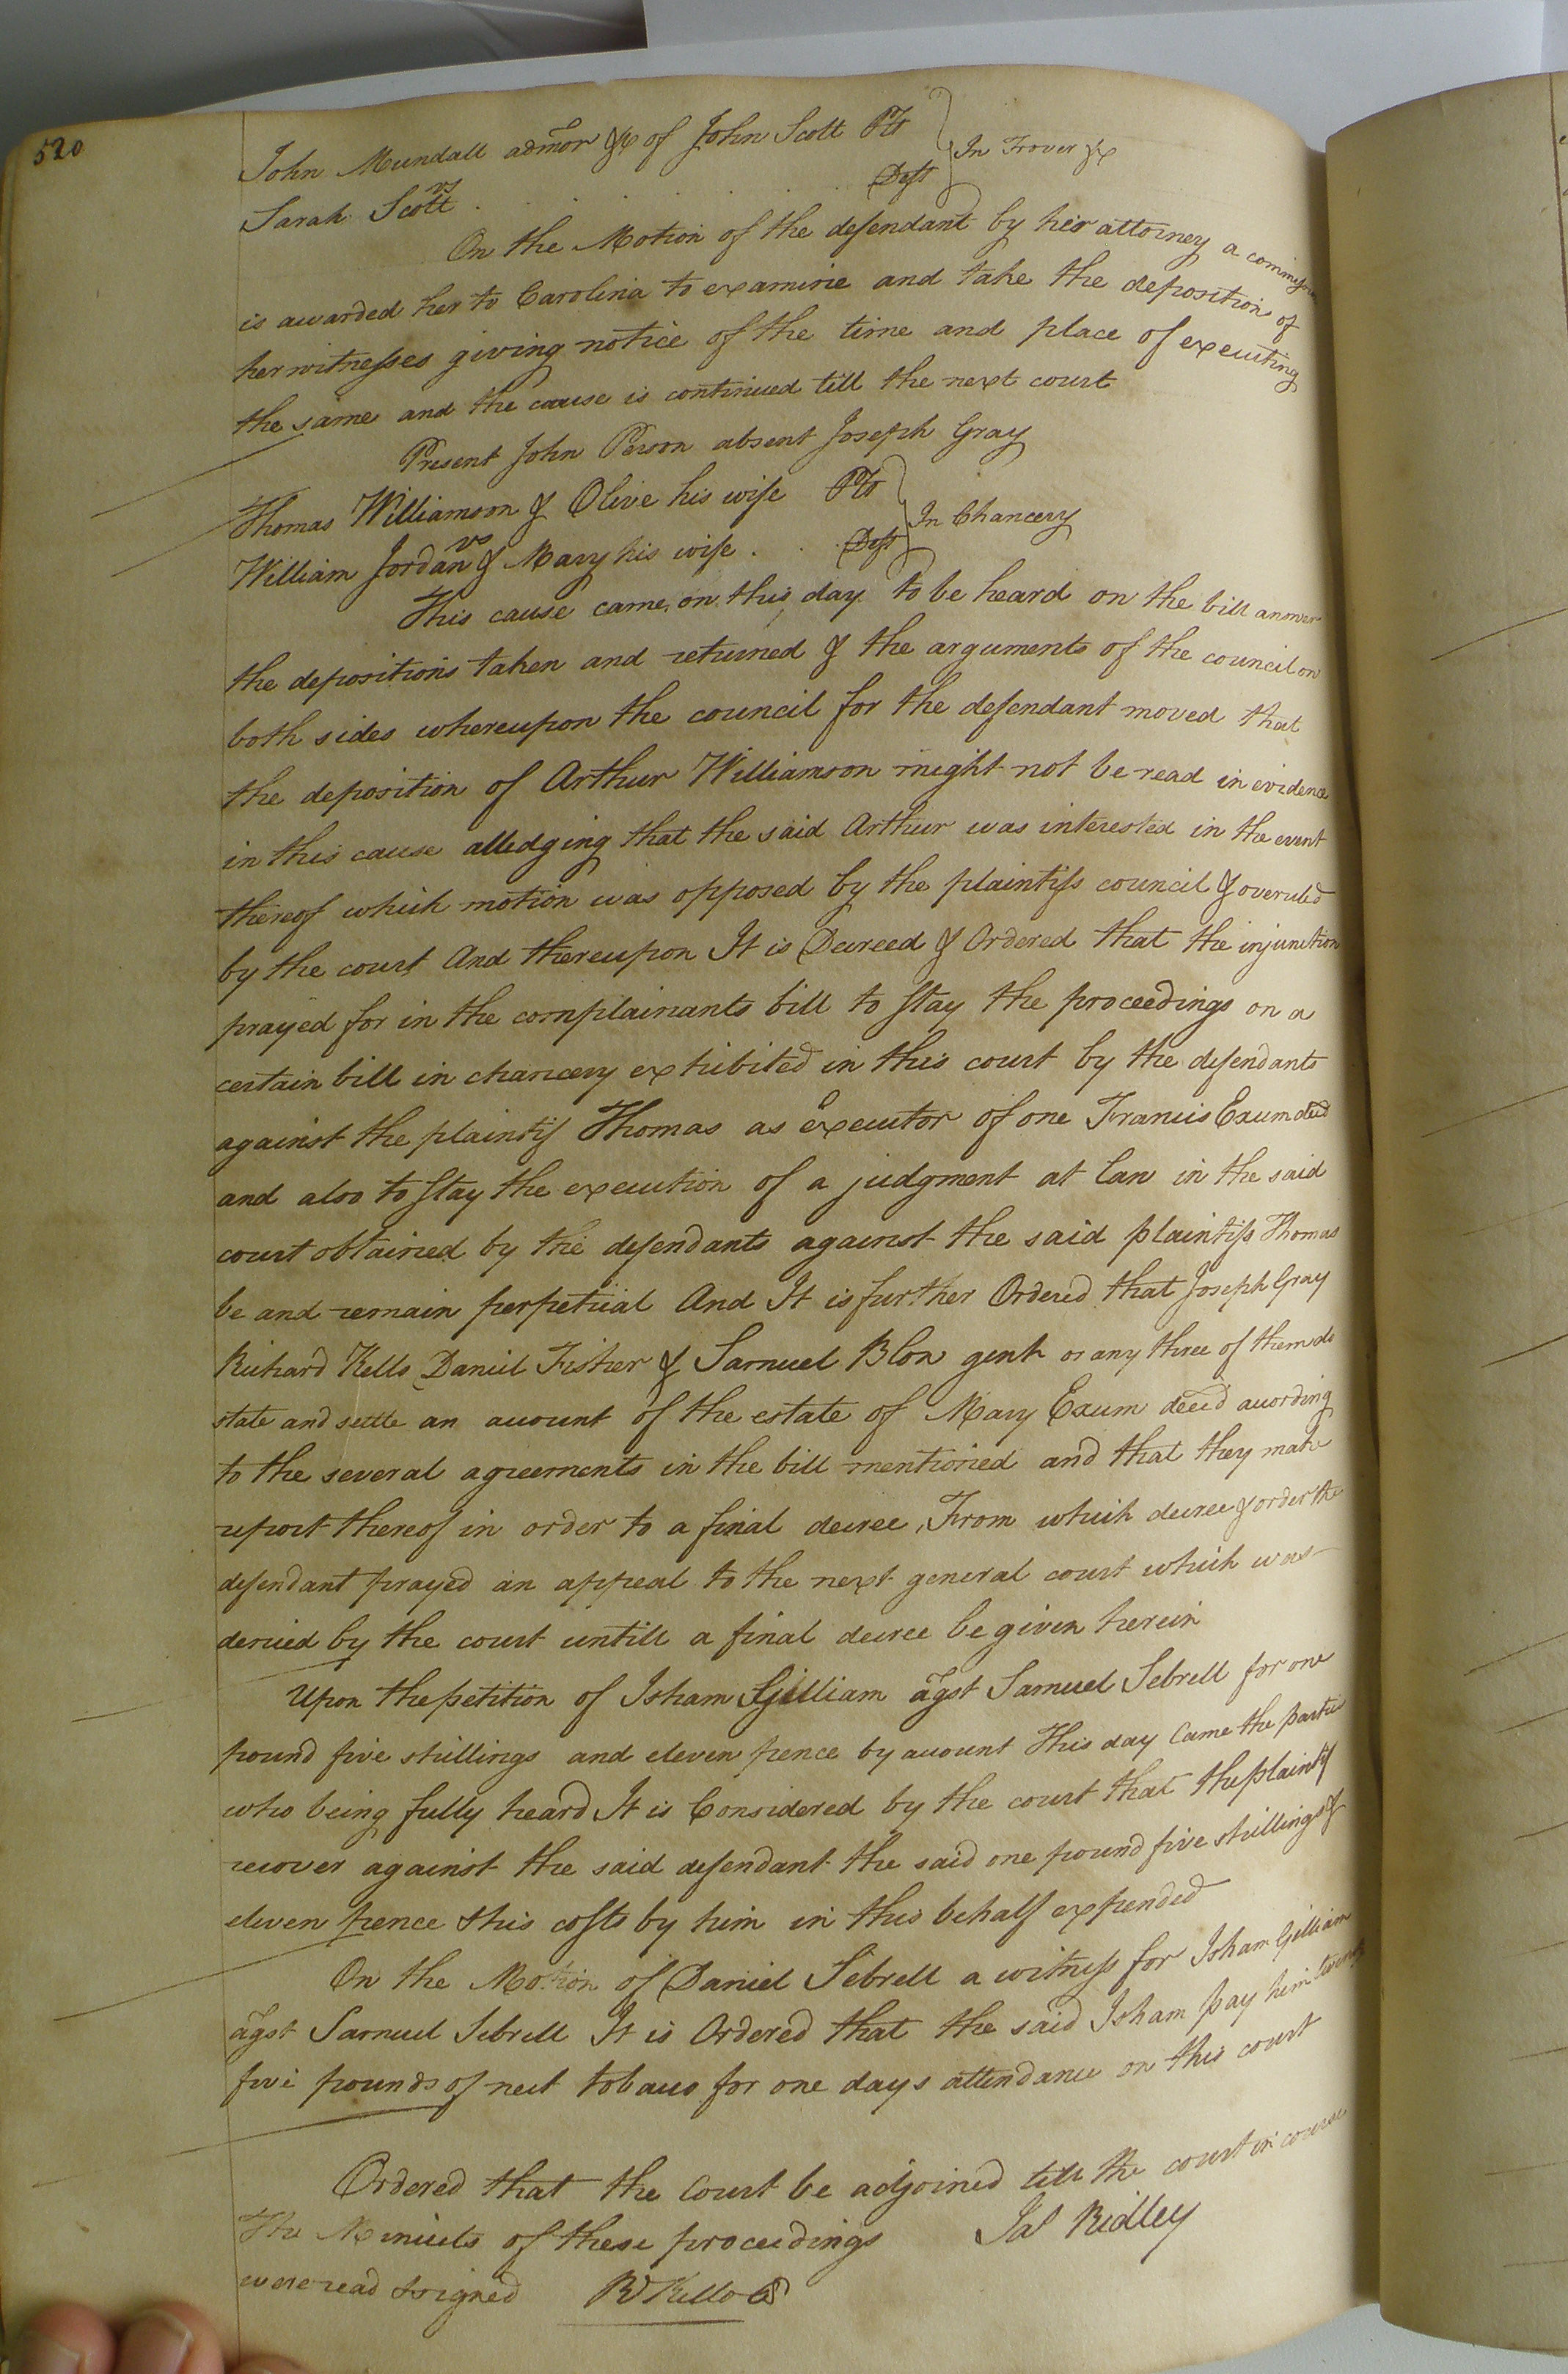 520
John Mundall admor &c of John Scott Plt
vs
In Trover &c
Sarah Scott . . . . Deft
On the Motion of the defendant by her attorney a commission
is awarded her to Carolina to examine and take the deposition of
her witnesses giving notice of the time and place of executing
the same and the cause is continued till the next court
Present John Person absent Joseph Gray
Thomas Williamson & Olive his wife Plts
vs
In Chancery
William Jordan & Mary his wife . . . Defts
This cause came on this day to be heard on the bill answer
the depositions taken and returned & the arguments of the council on
both sides whereupon the council for the defendant moved that
the deposition of Arthur Williamson might not be read in evidence
in this cause alledging that the said Arthur was interested in the event
thereof which motion was opposed by the plaintifs council & overuled
by the court And thereupon It is Decreed & Ordered that the injunction
prayed for in the complainants bill to stay the proceedings on a
certain bill in chancery exhibited in this court by the defendants
against the plaintif Thomas as executor of one Francis Exum decd
and also to stay the execution of a judgment at law in the said
court obtained by the defendants against the said plaintifs Thomas
be and remain perpetual And It is further Ordered that Joseph Gray
Richard Kello Daniel Fisher & Samuel Blow gent or any three of them do
state and settle an account of the estate of Mary Exum decd according
to the several agreements in the bill mentioned and that they make
report thereof in order to a final decree, From which decree & order the
defendant prayed an appeal to the next general court which was
denied by the court untill a final decree be given herein
Upon the petition of Isham Gilliam agst Samuel Sebrell for one
pound five shillings and eleven pence by account This day Came the parties
who being fully heard It is Considered by the court that the plaintif
recover against the said defendant the said one pound five shillings &
eleven pence & his costs by him in this behalf expended
On the Motion of Daniel Sebrell a witness for Isham Gilliam
agst Samuel Sebrell It is Ordered that the said Isham pay him twenty
five pounds of neet tobacco for one days attendance on this court
Ordered that the Court be adjoined till the court in course
The Minuets of these proceedings Jas Ridley
were read & signed R Kello